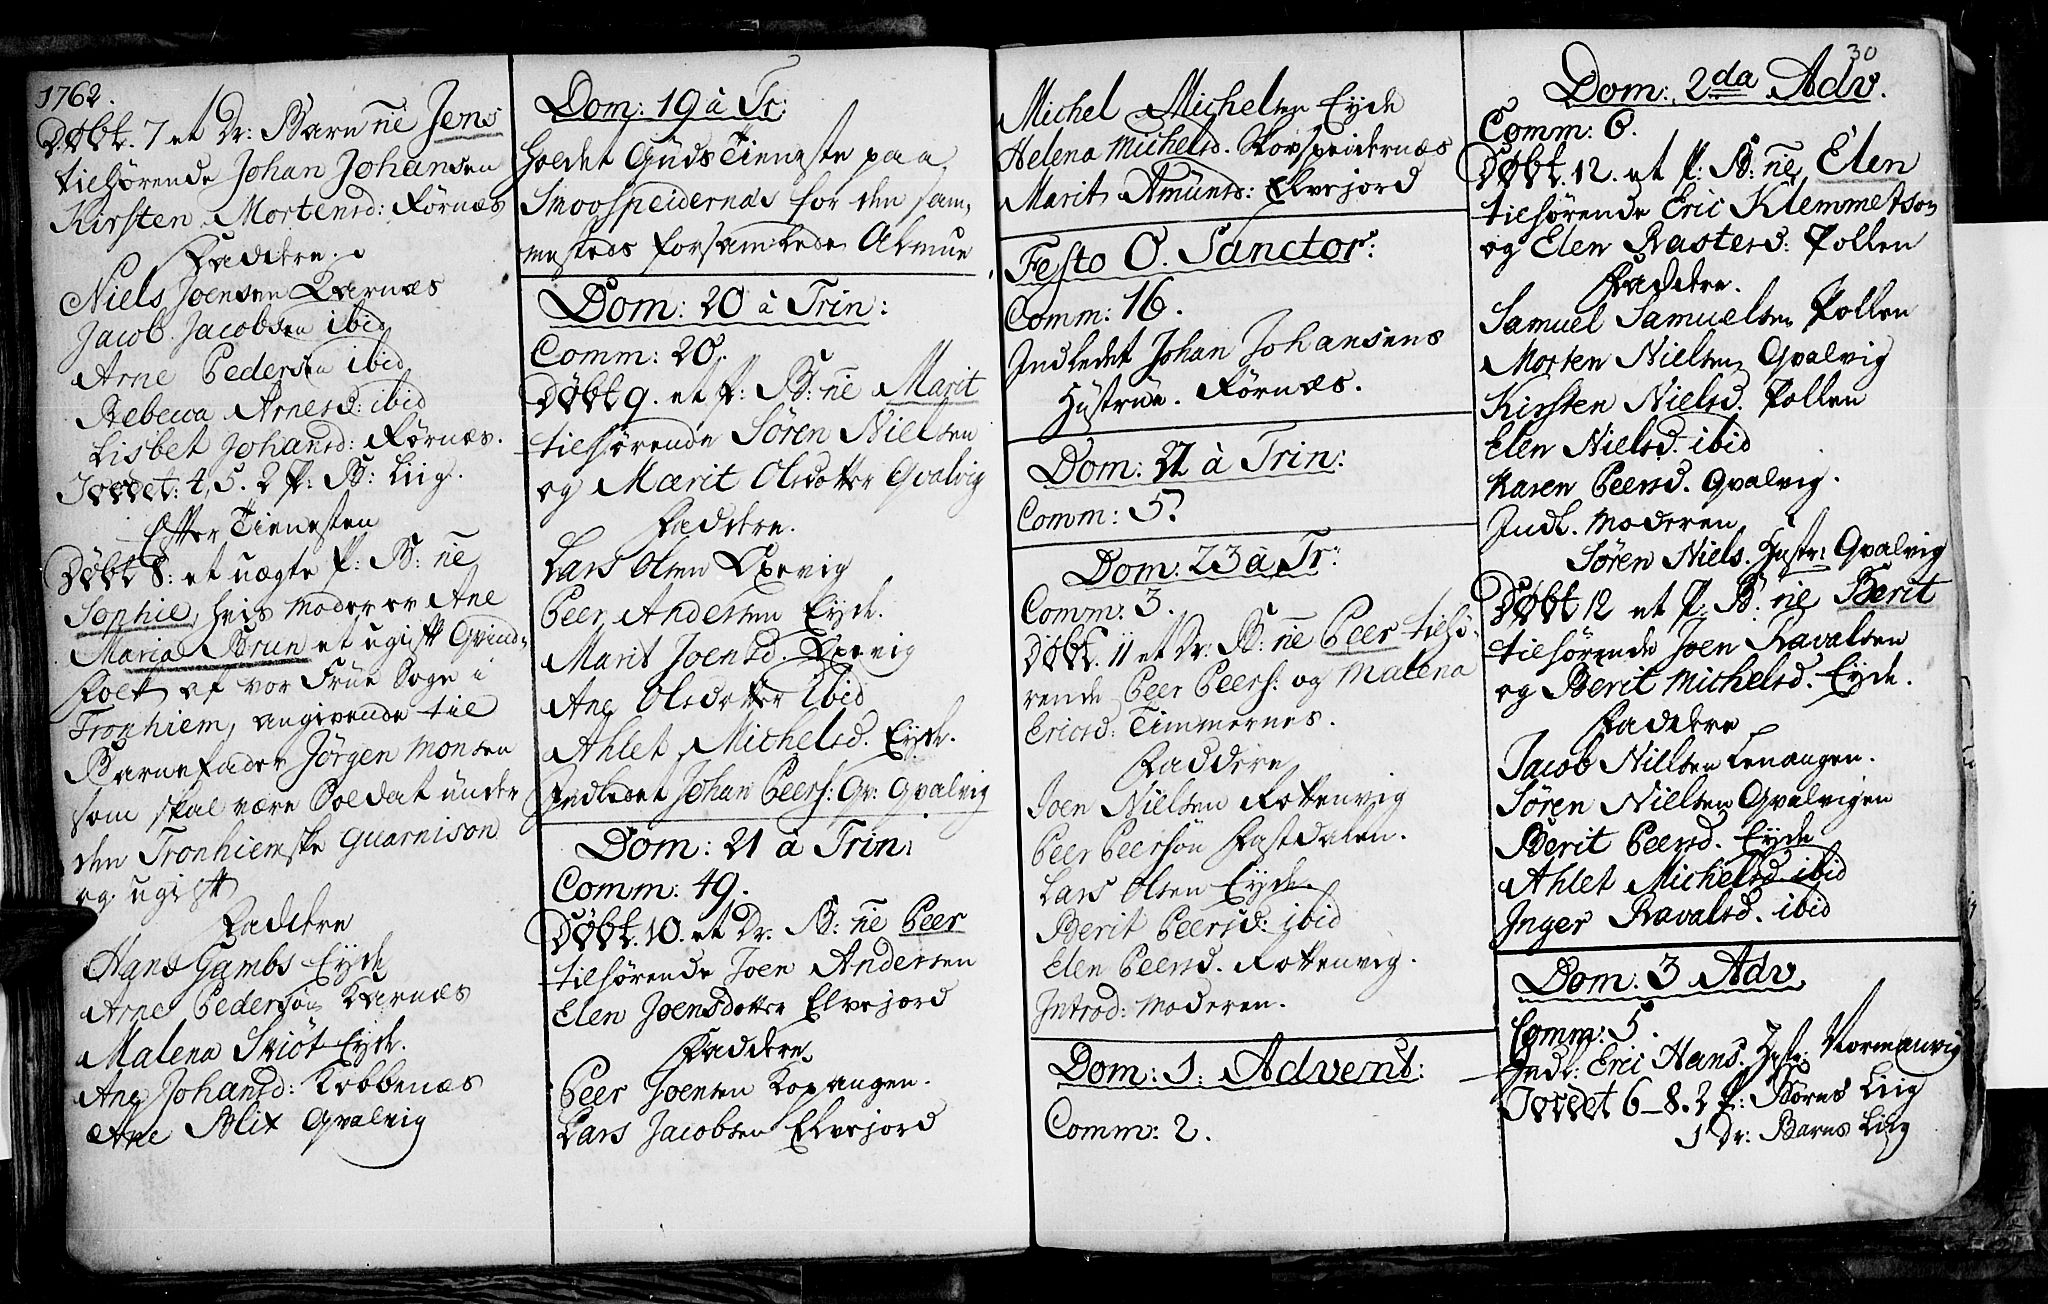 1762.
Døbt. 7 et Dr: Barn n̄e Jens
tilhørende Johan Johansen
Kirsten Mortensd: Førnæs
Faddere.
Niels Joensen Karnæs
Jacob Jacobsen ibid
Arne Pedersen ibid
Rebecca Arnesd: ibid
Lisbet Johansd: Førnæs.
Jordet: 4, 5. 2 P: B: Liig.
Efter Tienesten
Døbt 8: et uægte P: B: n̄e
Sophie, hvis Moder er Ane
Maria Brun et ugift Qvind-
folk af vor Frue Sogn i
Tronhiem, angivende til
Barnefader Jørgen Monsen
som skal være Soldat under
den Tronhiemske Guarnison
og ugift
Faddere
Hans Gambs Eyde
Arne Pedersøn Karnæs
Malena Skiöt Eyde.
Ane Johansd: Kobbenæs
Ane Blix Qvalvig
Dom: 19 à Tr:
Holdet Guds Tieneste paa
Snoospeidernæs for den sam-
mesteds forsamlede Almue
Dom: 20 à Trin:
Comm: 20.
Døbt 9. et P: B: n̄e Marit
tilhørende Søren Nielsen
og Marit Olsdotter Qvalvig
Faddere.
Lars Olsen Oxevig
Peer Andersen Eyde.
Marit Joensd. Oxevig
Ane Olsdotter ibid
Ahlet Michelsd. Eyde.
Indledet Johan Peers: Qv: Qvalvig
Dom: 21 à Trin:
Comm: 49.
Døbt. 10. et Dr: B: n̄e Peer
tilhørende Joen Andersen
Elen Joensdotter Elvejord
Faddere
Peer Joensen Kopangen.
Lars Jacobsen Elvejord
30
Michel Michelsen Eyde
Helena Michelsd. Skovspeidernæs
Marit Amunds: Elvejord
Festo O. Sanctor:
Comm: 16.
Indledet Johan Johansens
Hustrue. Førnæs.
Dom: 22 à Trin:
Comm: 5.
Dom: 23 à Tr:
Comm: 3.
Døbt. 11 et Dr: B: n̄e Peer tilhø-
rende Peer Peers: og Malena
Ericsd: Timmernes.
Faddere
Joen Nielsen Rottenvig
Peer Peersøn Fastdalen.
Lars Olsen Eyde.
Berit Peersd: ibid
Elen Peersd. Rottenvig.
Introd: Moderen.
Dom: 1: Advent:
Comm: 2.
Dom: 2da Adv.
Comm: 6.
Døbt. 12. et P: B: n̄e Elen
tilhørende Eric Klemmetsøn
og Elen Rastersd: Pollen
Faddere.
Samuel Samuelsen Pollen
Morten Nielsen Qvalvig
Kirsten Nielsd. Pollen
Elen Nielsd. ibid
Karen Peersd. Qvalvig.
Indl. Moderen
Søren Niels. Hustr: Qvalvig
Døbt 12 et P: B: n̄e Berit
tilhørende Joen Ravalsen
og Berit Michelsd. Eyde.
Faddere
Jacob Nielsen Lenangen.
Søren Nielsen Qvalvigen
Berit Peersd. Eyde
Ahlet Michelsd. ibid
Inger Ravalsd. ibid
Dom: 3 Adv.
Comm: 5.
Indl: Eric Hans. Hystr: Normanvig
Jordet 6-8. 2 P: Børns Liig
1 Dr: Barns Liig